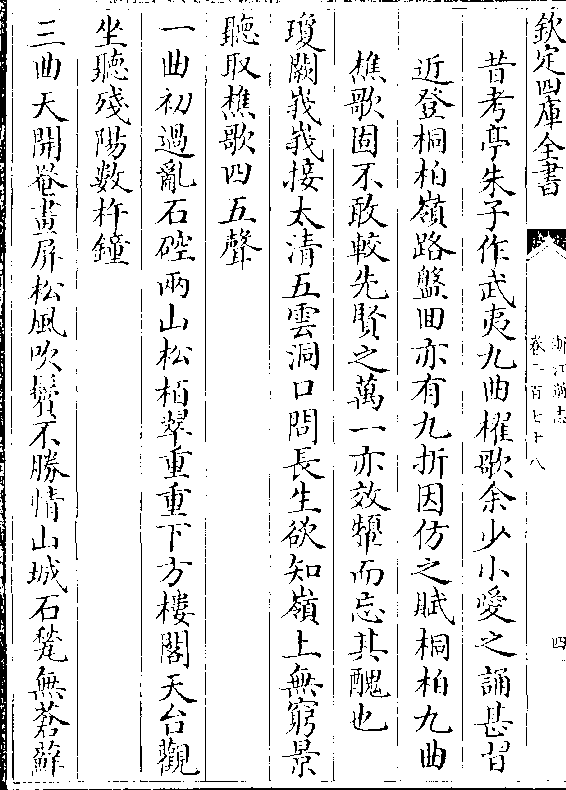 欽定四庫全書
浙江通志
卷二百七十八
四
昔考亭朱子作武夷九曲櫂歌余少小愛之誦甚習
近登桐柏嶺路盤回亦有九折因仿之賦桐柏九曲
樵歌固不敢較先賢之萬一亦效顰而忘其醜也
瓊闕峩峩接太清五雲洞口問長生欲知嶺上無窮景
聽取樵歌四五聲
一曲初過亂石硿兩山松栢翠重重下方樓閣天台觀
坐聽殘陽數杵鐘
三曲天開巻畫屏松風吹鬢不勝情山城石甃無蒼蘚